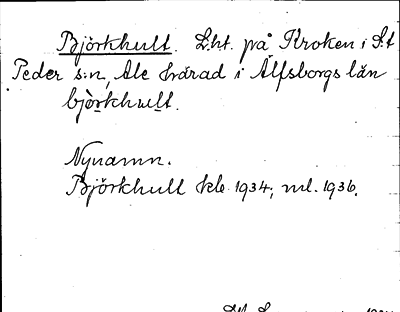 Björkhult. Lht. på Kroken i S:t
Peder s:n, Ale härad i Älfsborgs län
björkhult.
Nynamn.
Björkhult kbr. 1934, ml. 1936.